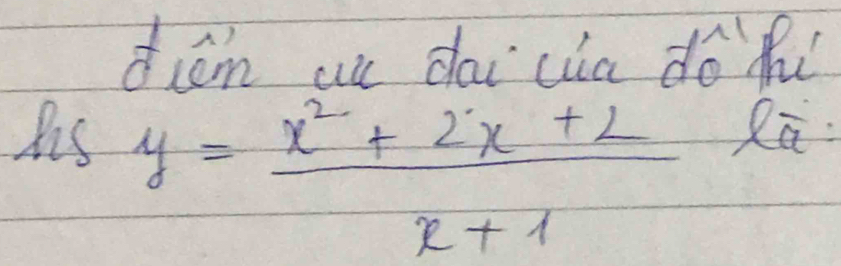 điểm cực đại của đồ thị
hs y = \frac{x^2 + 2x + 2}{x + 1} là: